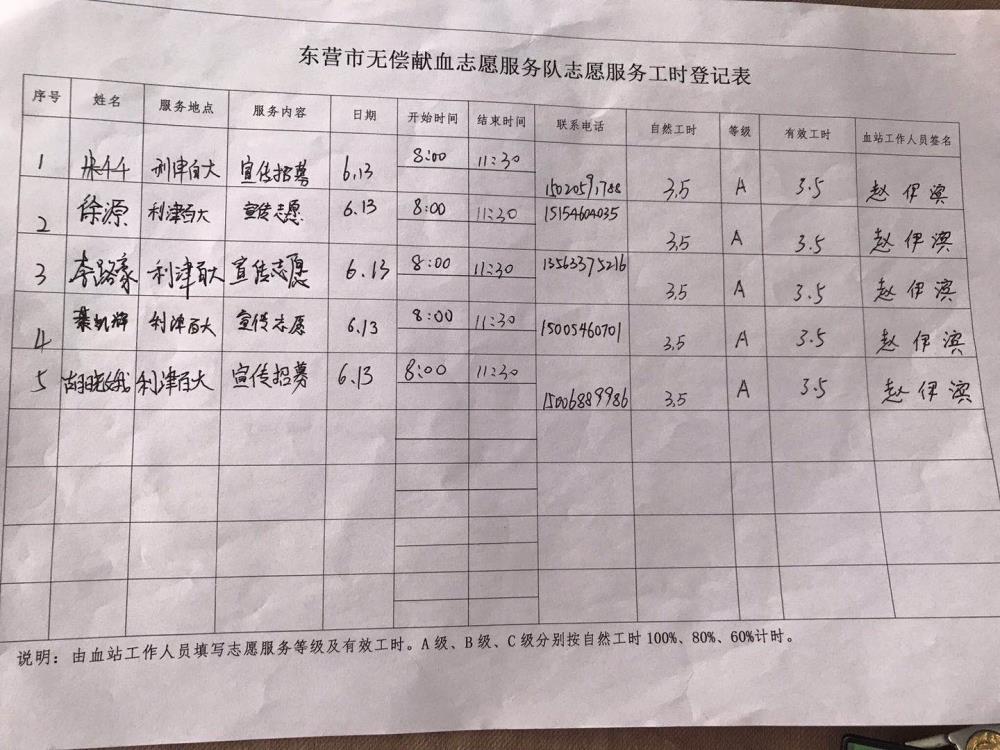 东营市无偿献血志愿服务队志愿服务工时登记表
序号 姓名 服务地点 服务内容 日期 开始时间 结束时间 联系电话 自然工时 等级 有效工时 血站工作人员签名
1 利津百大 宣传招募 6.13 8:00 11:30 15020591788 3.5 A 3.5 赵伊滨
2 徐源 利津百大 宣传志愿 6.13 8:00 11:30 15154604035 3.5 A 3.5 赵伊滨
3 李路豪 利津百大 宣传志愿 6.13 8:00 11:30 13563375216 3.5 A 3.5 赵伊滨
4 利津百大 宣传志愿 6.13 8:00 11:30 15005460701 3.5 A 3.5 赵伊滨
5 利津百大 宣传招募 6.13 8:00 11:30 15006889986 3.5 A 3.5 赵伊滨
说明：由血站工作人员填写志愿服务等级及有效工时。A 级、B 级、C 级分别按自然工时 100%、80%、60%计时。